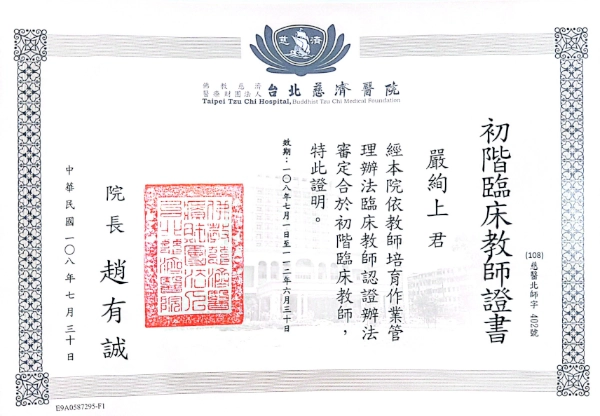 慈濟
佛教慈濟
醫療財團法人 台北慈濟醫院
Taipei Tzu Chi Hospital, Buddhist Tzu Chi Medical Foundation
初階臨床教師證書
(108)慈醫北師字 402號
嚴絢上 君
經本院依教師培育作業管
理辦法臨床教師認證辦法
審定合於初階臨床教師，
特此證明。
效期：一〇八年七月一日至一一二年六月三十日
佛教慈濟醫
療財團法人
台北慈濟醫院
院長 趙有誠
中華民國一〇八年七月三十日
E9A0587295-F1